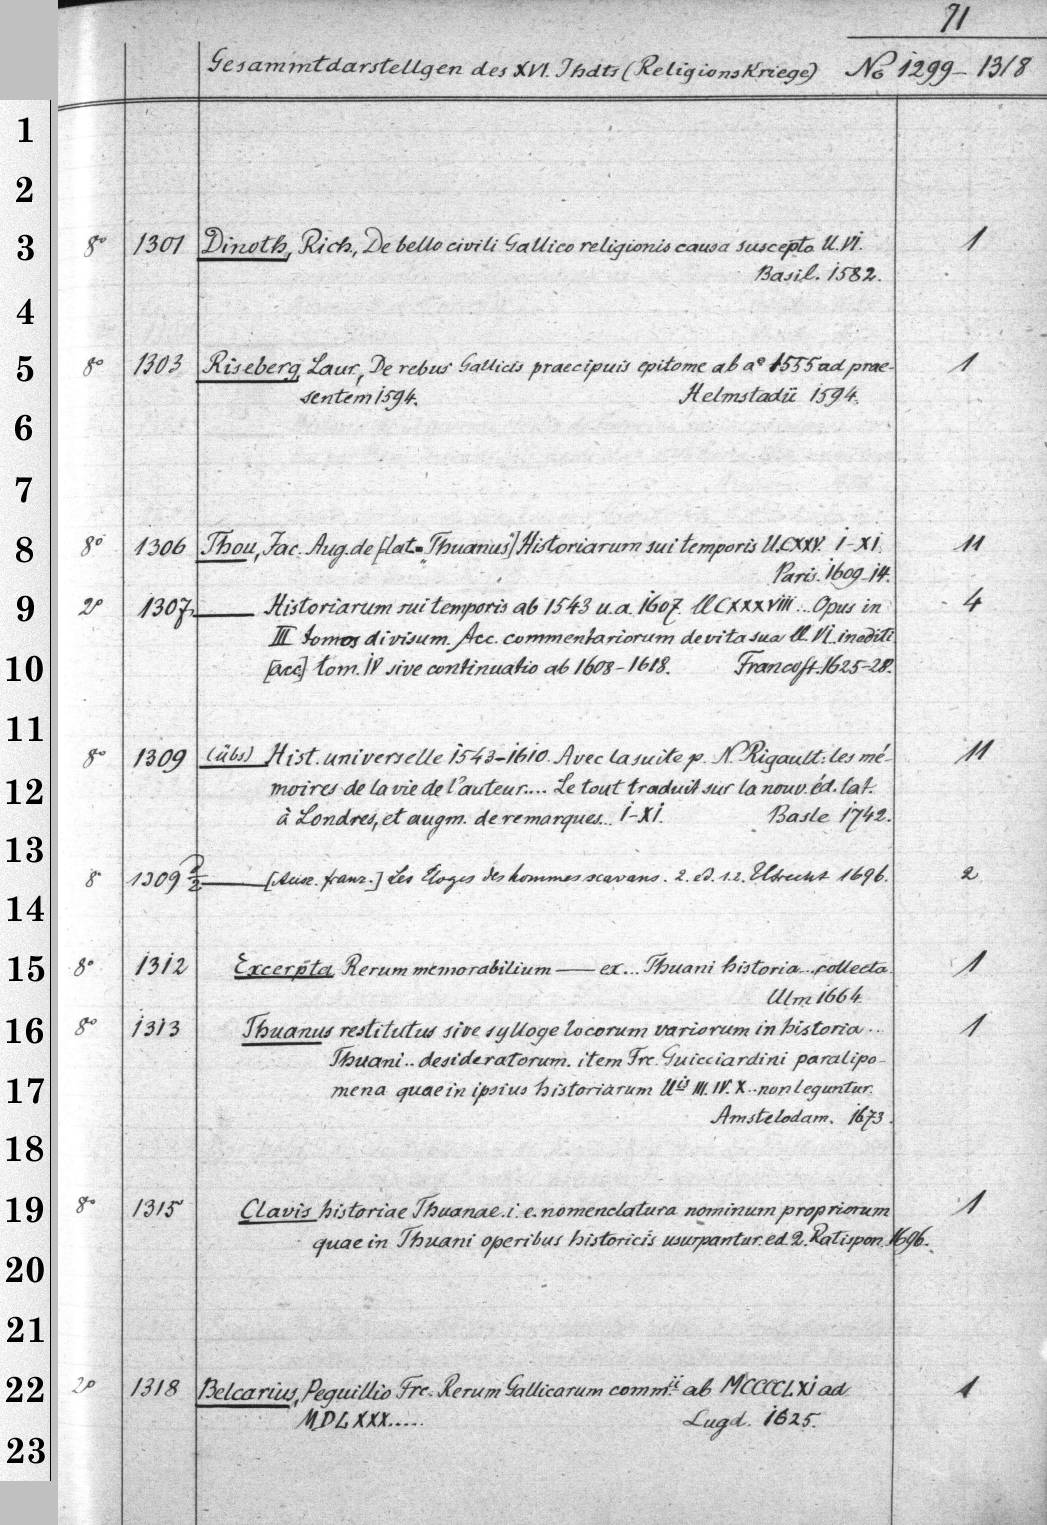 71
Gesammtdarstellgen des XVI. Jhdts (Religionskriege) No 1299 – 1318
1
2
3 8° 1301 Dinoth, Rich., De bello civili Gallico religionis causa suscepto ll. VI. 1
Basil. 1582.
4
5 8° 1303 Riseberg Laur., De rebus Gallicis praecipuis epitome ab a° 1555 ad prae- 1
sentem 1594. Helmstadii 1594.
6
7
8 8° 1306 Thou, Jac. Aug. de [lat. Thuanus] Historiarum sui temporis ll. CXXV. I–XI. 11
Paris. 1609–14.
9 2° 1307. —— Historiarum sui temporis ab 1543 u. a. 1607. ll CXXXVIII... Opus in 4
III tomos divisum. Acc. commentariorum de vita sua ll. VI inediti
10 [acc] tom. IV sive continuatio ab 1608–1618. Francoft. 1625–28.
11
8° 1309 (übs) Hist. universelle 1543–1610. Avec la suite p. N. Rigault: les mé- 11
12 moires de la vie de l'auteur.... Le tout traduit sur la nouv. éd. lat.
à Londres, et augm. de remarques... I–XI. Basle 1742.
13
8° 1309 a/2 —— [Ausz. franz.] Les Eloges des hommes scavans. 2. ed. 1.2. Utrecht 1696. 2
14
15 8° 1312 Excerpta Rerum memorabilium —— ex... Thuani historia... collecta 1
Ulm 1664.
16 8° 1313 Thuanus restitutus sive sylloge locorum variorum in historia... 1
Thuani.. desideratorum. item Frc. Guicciardini paralipo-
17 mena quae in ipsius historiarum ll is III. IV. X.. non leguntur.
Amstelodam. 1673.
18
19 8° 1315 Clavis historiae Thuanae. i. e. nomenclatura nominum propriorum 1
quae in Thuani operibus historicis usurpantur. ed. 2. Ratispon. 1696.
20
21
22 2° 1318 Belcarius, Peguillio Frc. Rerum Gallicarum comm. ii ab MCCCCLXI ad 1
MDLXXX..... Lugd. 1625.
23